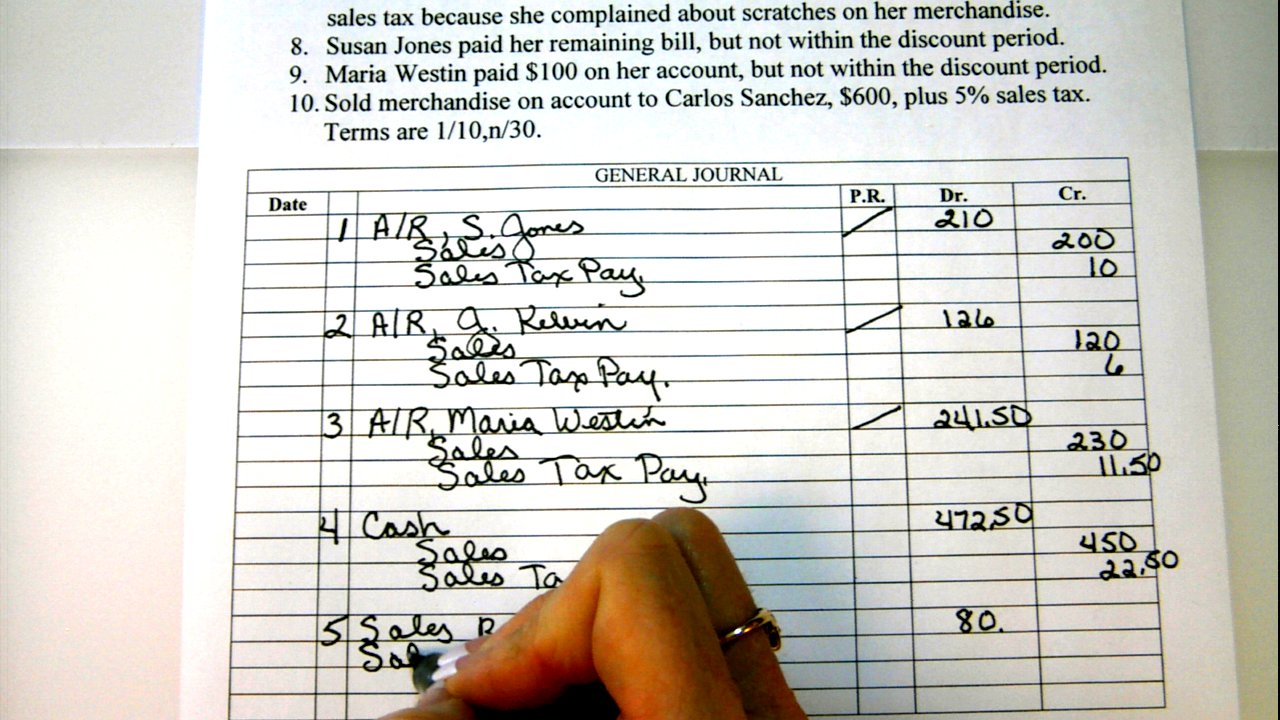 sales tax because she complained about scratches on her merchandise.
8. Susan Jones paid her remaining bill, but not within the discount period.
9. Maria Westin paid $100 on her account, but not within the discount period.
10. Sold merchandise on account to Carlos Sanchez, $600, plus 5% sales tax.
Terms are 1/10,n/30.
GENERAL JOURNAL
Date P.R. Dr. Cr.
1 A/R, S. Jones 210
Sales 200
Sales Tax Pay. 10
2 A/R, J. Kelvin 126
Sales 120
Sales Tax Pay. 6
3 A/R, Maria Westin 241.50
Sales 230
Sales Tax Pay. 11.50
4 Cash 472.50
Sales 450
Sales Ta 22.50
5 Sales R 80.
Sal